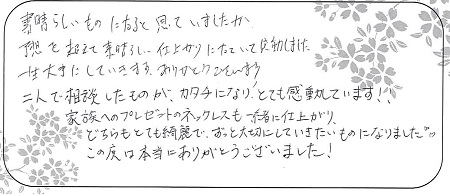 素晴らしいものになると思っていましたが
予想を超える素晴らしい仕上がりになっていて感動しました
一生大事にしていきます。ありがとうございます
二人で相談したものが、カタチになり、とても感動しています!!
家族へのプレゼントのネックレスも 仕上がり
どちらもとても綺麗で、ずっと大切にしていきたいものになりました
この度は本当にありがとうございました!